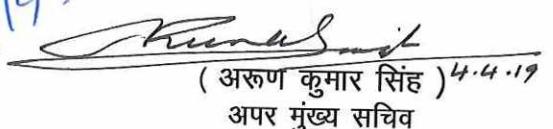 ( अरूण कुमार सिंह ) 4.4.19
अपर मुंख्य सचिव